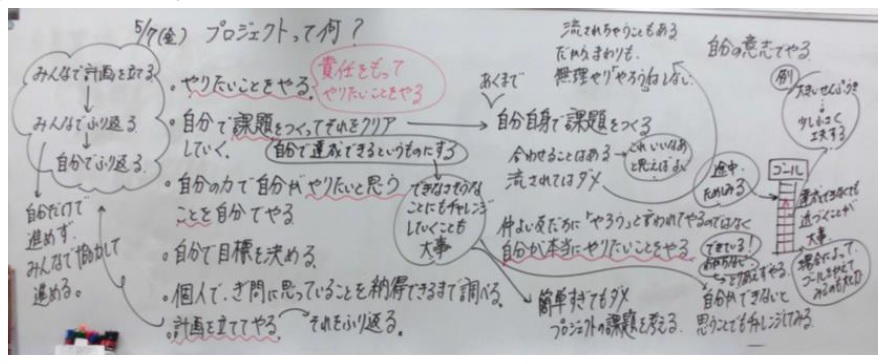 5/7(金) プロジェクトって何?
みんなで計画を立てる
みんなでふり返る
自分でふり返る
自分だけで
進めず
みんなで協力して
進める。
・やりたいことをやる
責任をもって
やりたいことをやる
・自分で課題をつくってそれをクリア
していく。
自分で達成できるというものにする
・自分の力で自分がやりたいと思う
ことを自分でやる
できなさそうな
ことにもチャレンジ
していくことも
大事
・自分で目標を決める
・個人で、ぎ問に思っていることを納得できるまで調べる。
・計画を立ててやる
それをふり返る。
流されちゃうこともある
だからまわりも、
無理やり「やろうね」しない
あくまで
自分自身で課題をつくる
合わせることはある
これいいなあ
と思えばよい
流されてはダメ
仲よい友だちに「やろう」と言われてやるのではなく
自分が本当にやりたいことをやる
簡単すぎてもダメ
プロジェクトの課題を考える
自分の意志でやる
例
大きいせんぷうき
少し小さく
工夫する
途中
ためしみる
ゴール
達成できなくても
近づくことが
大事
できている!
とりあえずやる。
自分ができないと
思うことでもチャレンジしてみる
場合によって、
ゴールを